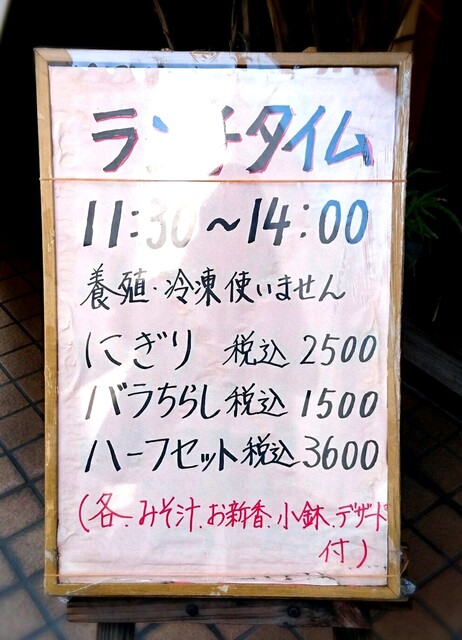 ランチタイム
11:30～14:00
養殖・冷凍使いません
にぎり 税込 2500
バラちらし 税込 1500
ハーフセット 税込 3600
(各、みそ汁、お新香、小鉢、デザート
付)